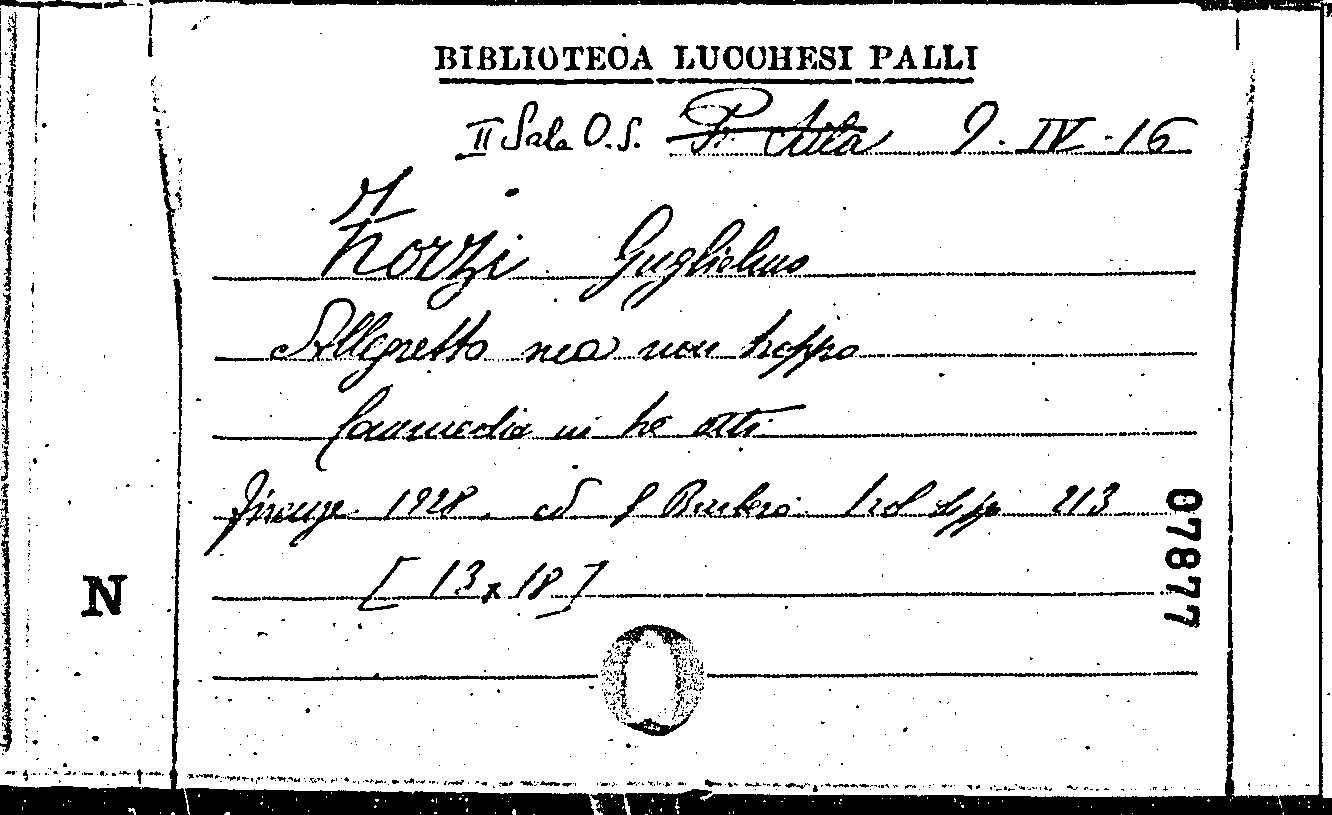 BIBLIOTECA LUCCHESI PALLI
II Sala O.S. 9. IV - 16
Zorzi Guglielmo
Allegretto ma non troppo
Commedia in tre atti
Firenze 1928. ed G Barbera. 1 vol pp 213
[13 x 18]
07877
N